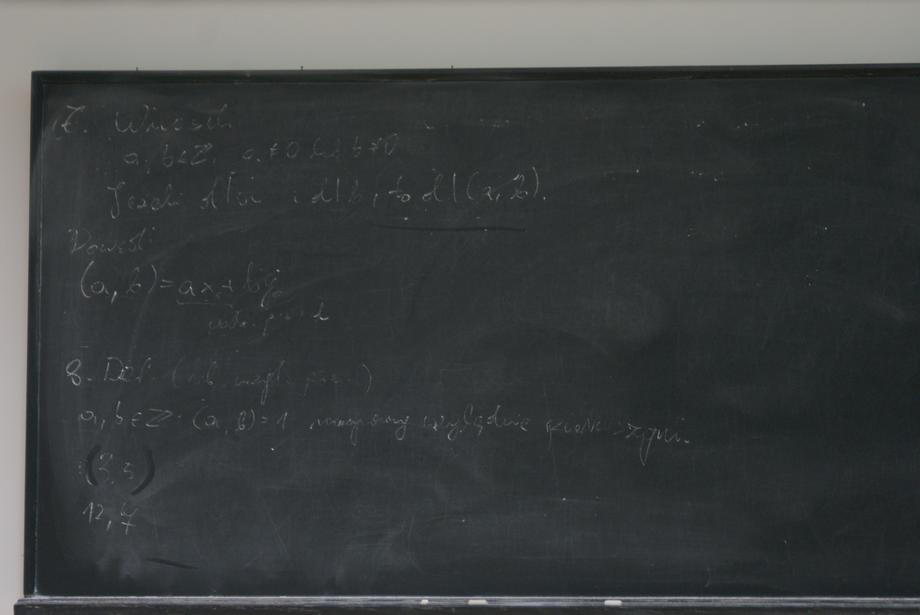 7. Wniosek.
a, b ∈ Z, a ≠ 0 lub b ≠ 0
Jeżeli d|a i d|b, to d|(a, b).
Dowód:
(a, b) = ax + by
podz. przez d
8. Def. (lb. wzgl. pierw.)
a, b ∈ Z (a, b) = 1 nazywamy względnie pierwszymi.
(2, 3)
12, 7